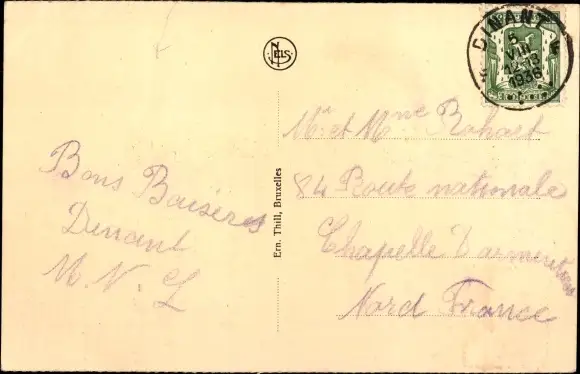 DINANT
5
VIII
12-13
1936
NELS
Bons Baiseres
Dinant
M. N. L
Ern. Thill, Bruxelles
Mr et Mme Rohart
84 Route nationale
Chapelle D'armentières
Nord France